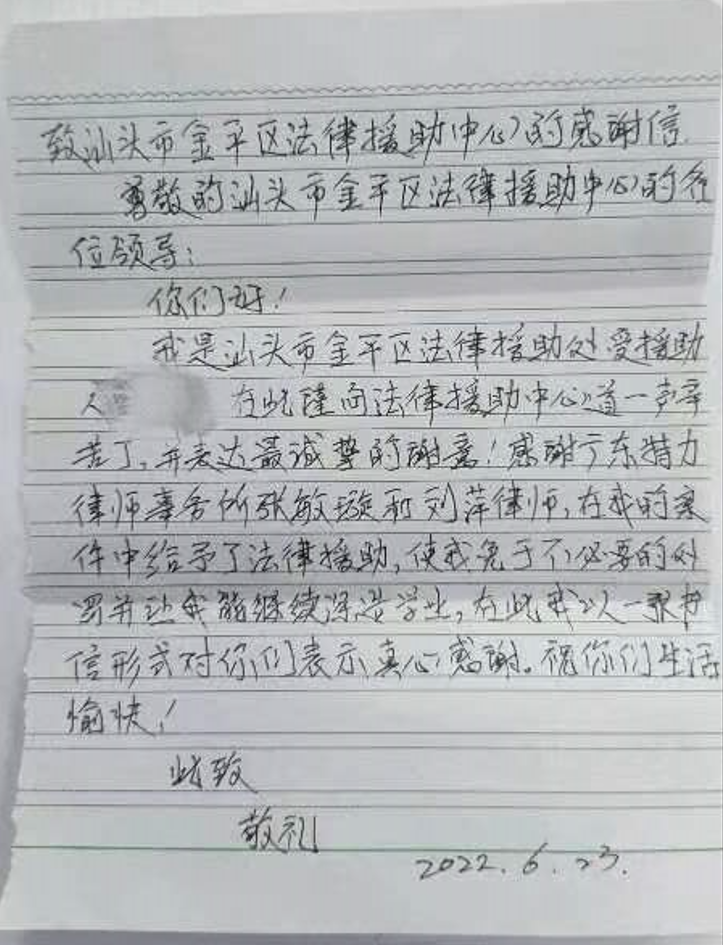 致汕头市金平区法律援助中心的感谢信
尊敬的汕头市金平区法律援助中心的各
位领导：
你们好！
我是汕头市金平区法律援助处受援助
人 在此谨向法律援助中心道一声辛
苦了，并表达最诚挚的谢意！感谢广东特力
律师事务所张敏璇和刘萍律师，在我的案
件中给予了法律援助，使我免于不必要的处
罚并让我能继续深造学业，在此我以一张书
信形式对你们表示真心感谢。祝你们生活
愉快！
此致
敬礼
2022.6.23.